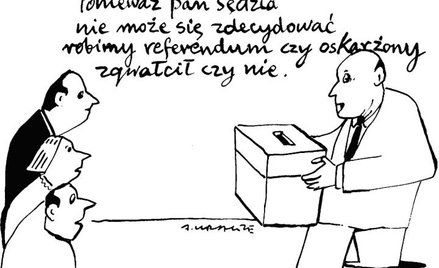 Ponieważ pan sędzia
nie może się zdecydować
robimy referendum czy oskarżony
zgwałcił czy nie.